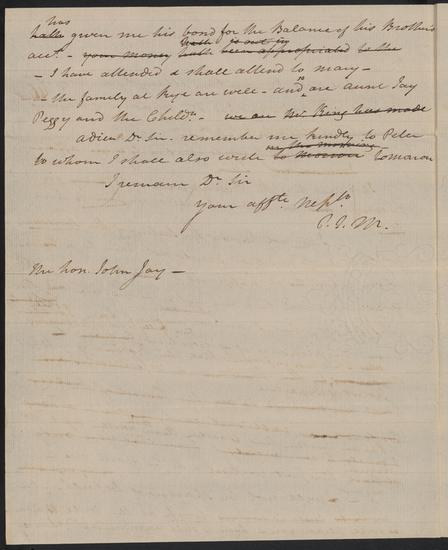 has
hath given me his bond for the Balance of his Brothers
acct. - your money hath been appropriated to the
- I have attended & shall attend to mary -
- the family at Rye are well - and so are aunt Jay
Peggy and the Childn. - we are Mr. King has made
adieu Dr. Sir. remember me kindly to Peter
to whom I shall also write to morrow tomorrow
I remain Dr. Sir
your affte. Nephw
P. J. M.
The hon. John Jay -